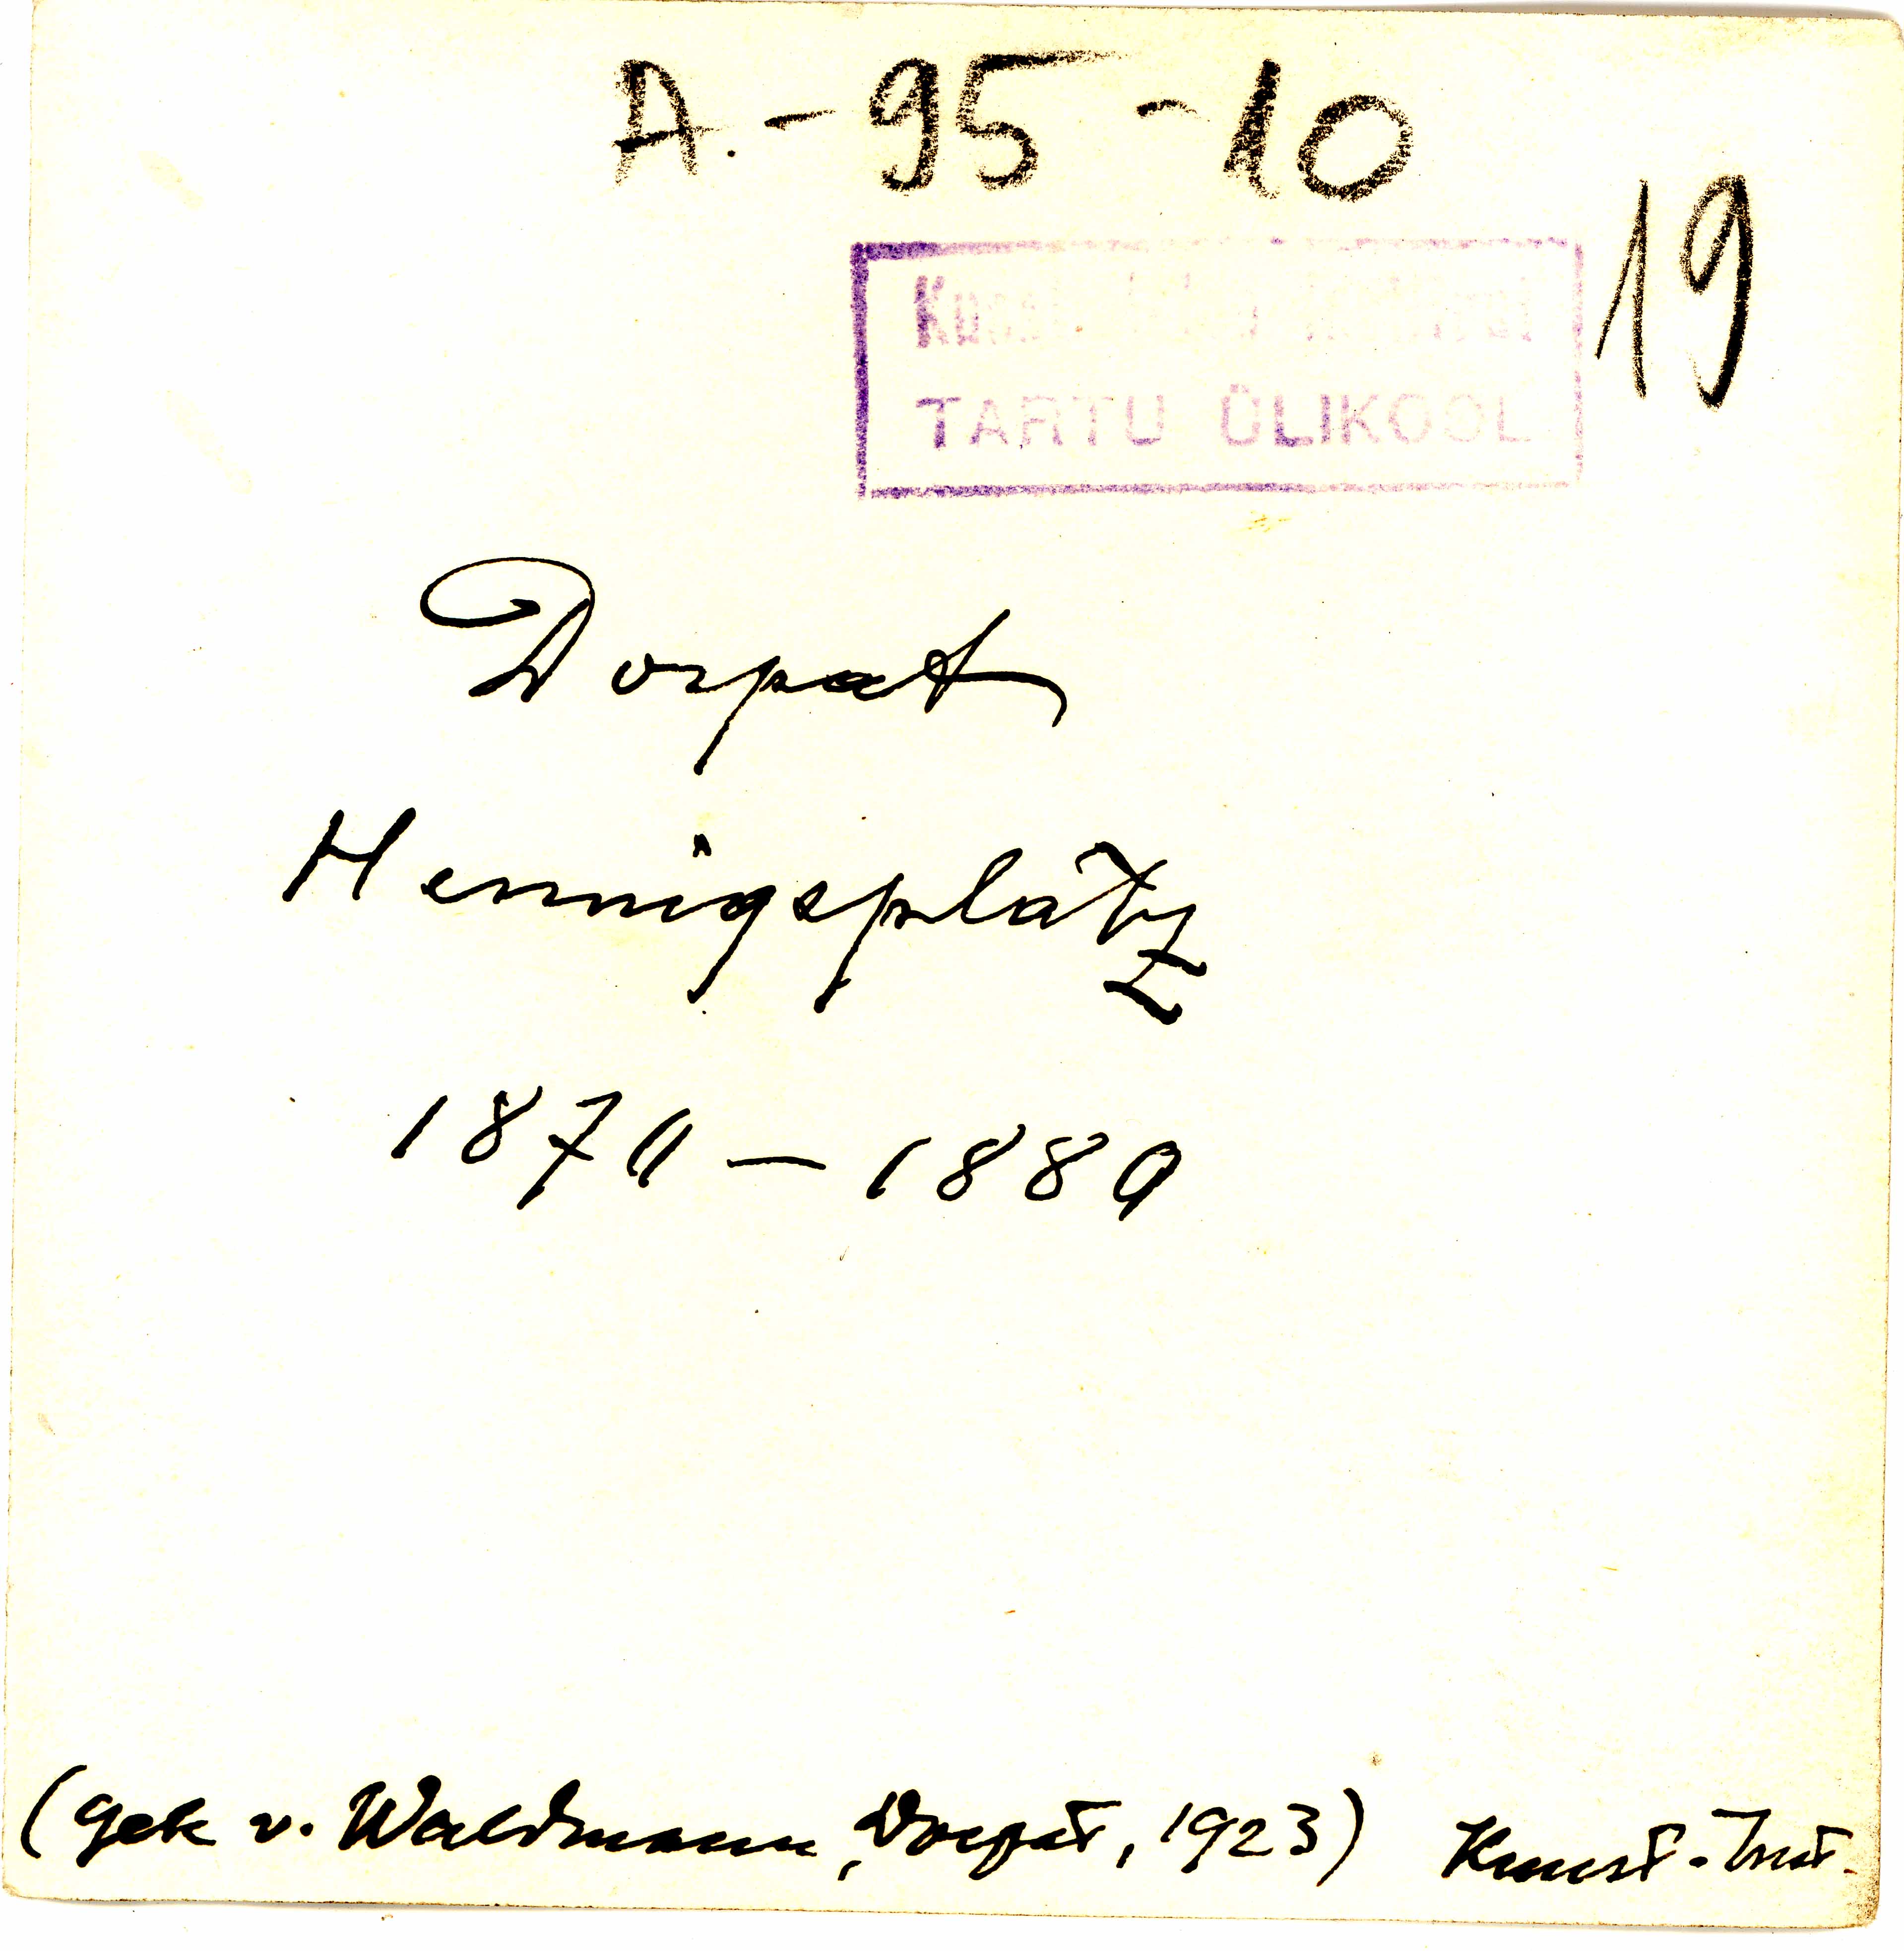 A.-95-10
19
TARTU ÜLIKOOL
Dorpat
Hennigsplatz
1870-1880
(gek v. Waldmann, Dorpat, 1923) Kunst-Inst.